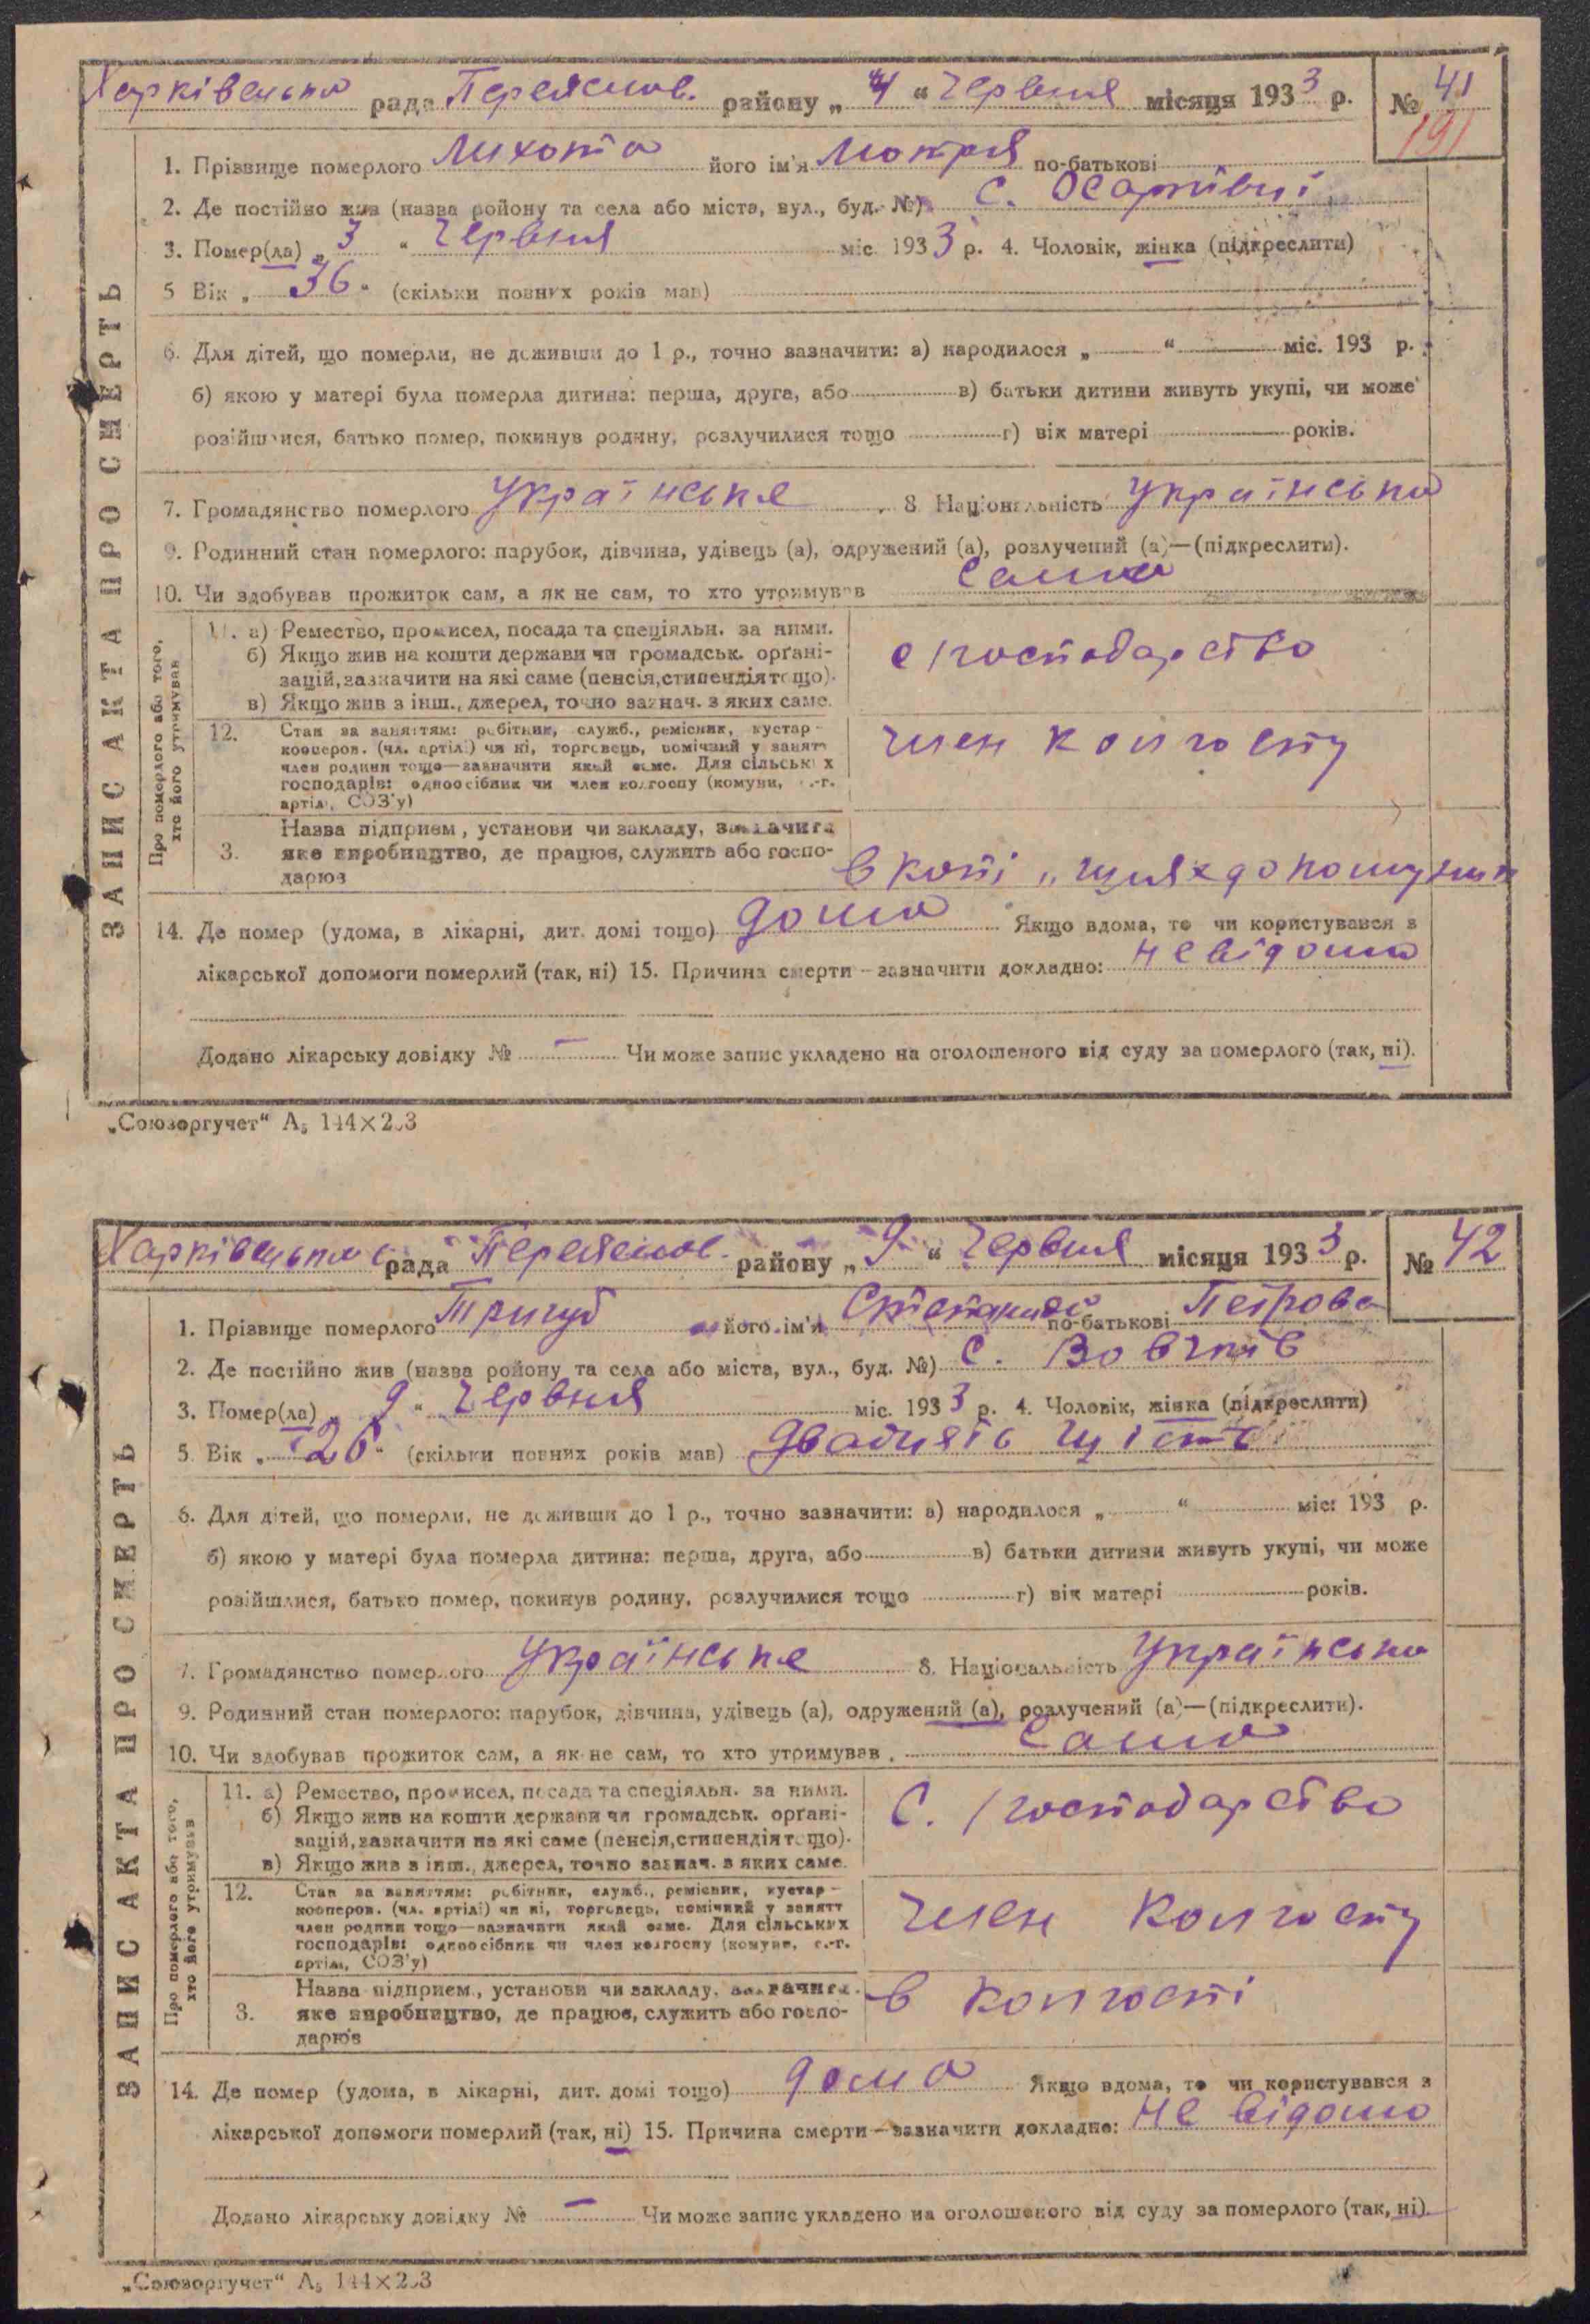 Харківецька рада Переяслав. району „ 4 “ Червня місяця 1933 р. № 41
191
1. Прізвище померлого Лихота його ім'я Мотря по-батькові
2. Де постійно жив (назва ройону та села або міста, вул., буд. №) с.
3. Помер(ла) „ 3 “ Червня міс. 1933 р. 4. Чоловік, жінка (підкреслити)
5 Вік „ 36 “ (скільки повних років мав)
6. Для дітей, що померли, не доживши до 1 р., точно зазначити: а) народилося „ “ міс. 193 р.
б) якою у матері була померла дитина: перша, друга, або в) батьки дитини живуть укупі, чи може
розійшлися, батько помер, покинув родину, розлучилися тощо г) вік матері років.
7. Громадянство померлого Українське 8. Національність Українська
9. Родинний стан померлого: парубок, дівчина, удівець (а), одружений (а), розлучений (а)—(підкреслити).
10. Чи здобував прожиток сам, а як не сам, то хто утримував Сама
ЗАПИС АКТА ПРО СМЕРТЬ
Про померлого або того, хто його утримував
11. а) Ремество, промисел, посада та спеціяльн. за ними.
б) Якщо жив на кошти держави чи громадськ. орґані-
зацій, зазначити на які саме (пенсія, стипендія тощо).
в) Якщо жив з інш., джерел, точно зазнач. з яких саме.
с/господарство
12. Стан за заняттям: робітник, служб., ремісник, кустар-
кооперов. (чл. артілі) чи ні, торговець, помічний у занятт
член родини тощо—зазначити який саме. Для сільських
господарів: одноосібник чи член колгоспу (комуни, с.-г.
артілі, СОЗ'у)
член колгоспу
3. Назва підприєм., установи чи закладу, зазначити
яке виробництво, де працює, служить або госпо-
дарює
в колі „
14. Де помер (удома, в лікарні, дит. домі тощо) дома Якщо вдома, то чи користувався з
лікарської допомоги померлий (так, ні) 15. Причина смерти – зазначити докладно: невідомо
Додано лікарську довідку № — Чи може запис укладено на оголошеного від суду за померлого (так, ні).
„Союзоргучет“ А₅ 144×203
Харківецька с рада Переяслав. району „ 9 “ Червня місяця 1933 р. № 42
1. Прізвище померлого Тригуб його ім'я по-батькові Петрова
2. Де постійно жив (назва ройону та села або міста, вул., буд. №) с. Вовчків
3. Помер(ла) „ 9 “ Червня міс. 1933 р. 4. Чоловік, жінка (підкреслити)
5. Вік „ 26 “ (скільки повних років мав) двадцять шість
6. Для дітей, що померли, не доживши до 1 р., точно зазначити: а) народилося „ “ міс. 193 р.
б) якою у матері була померла дитина: перша, друга, або в) батьки дитини живуть укупі, чи може
розійшлися, батько помер, покинув родину, розлучилися тощо г) вік матері років.
7. Громадянство померлого Українське 8. Національність Українська
9. Родинний стан померлого: парубок, дівчина, удівець (а), одружений (а), розлучений (а)—(підкреслити).
10. Чи здобував прожиток сам, а як не сам, то хто утримував Сама
ЗАПИС АКТА ПРО СМЕРТЬ
Про померлого або того, хто його утримував
11. а) Ремество, промисел, посада та спеціяльн. за ними.
б) Якщо жив на кошти держави чи громадськ. орґані-
зацій, зазначити на які саме (пенсія, стипендія тощо).
в) Якщо жив з інш., джерел, точно зазнач. з яких саме.
с. /господарство
12. Стан за заняттям: робітник, служб., ремісник, кустар-
кооперов. (чл. артілі) чи ні, торговець, помічний у занятт
член родини тощо—зазначити який саме. Для сільських
господарів: одноосібник чи член колгоспу (комуни, с.-г.
артілі, СОЗ'у)
член колгоспу
3. Назва підприєм., установи чи закладу, зазначити
яке виробництво, де працює, служить або госпо-
дарює
в колгоспі
14. Де помер (удома, в лікарні, дит. домі тощо) дома Якщо вдома, то чи користувався з
лікарської допомоги померлий (так, ні) 15. Причина смерти – зазначити докладно: не відомо
Додано лікарську довідку № — Чи може запис укладено на оголошеного від суду за померлого (так, ні).
„Союзоргучет“ А₅ 144×203